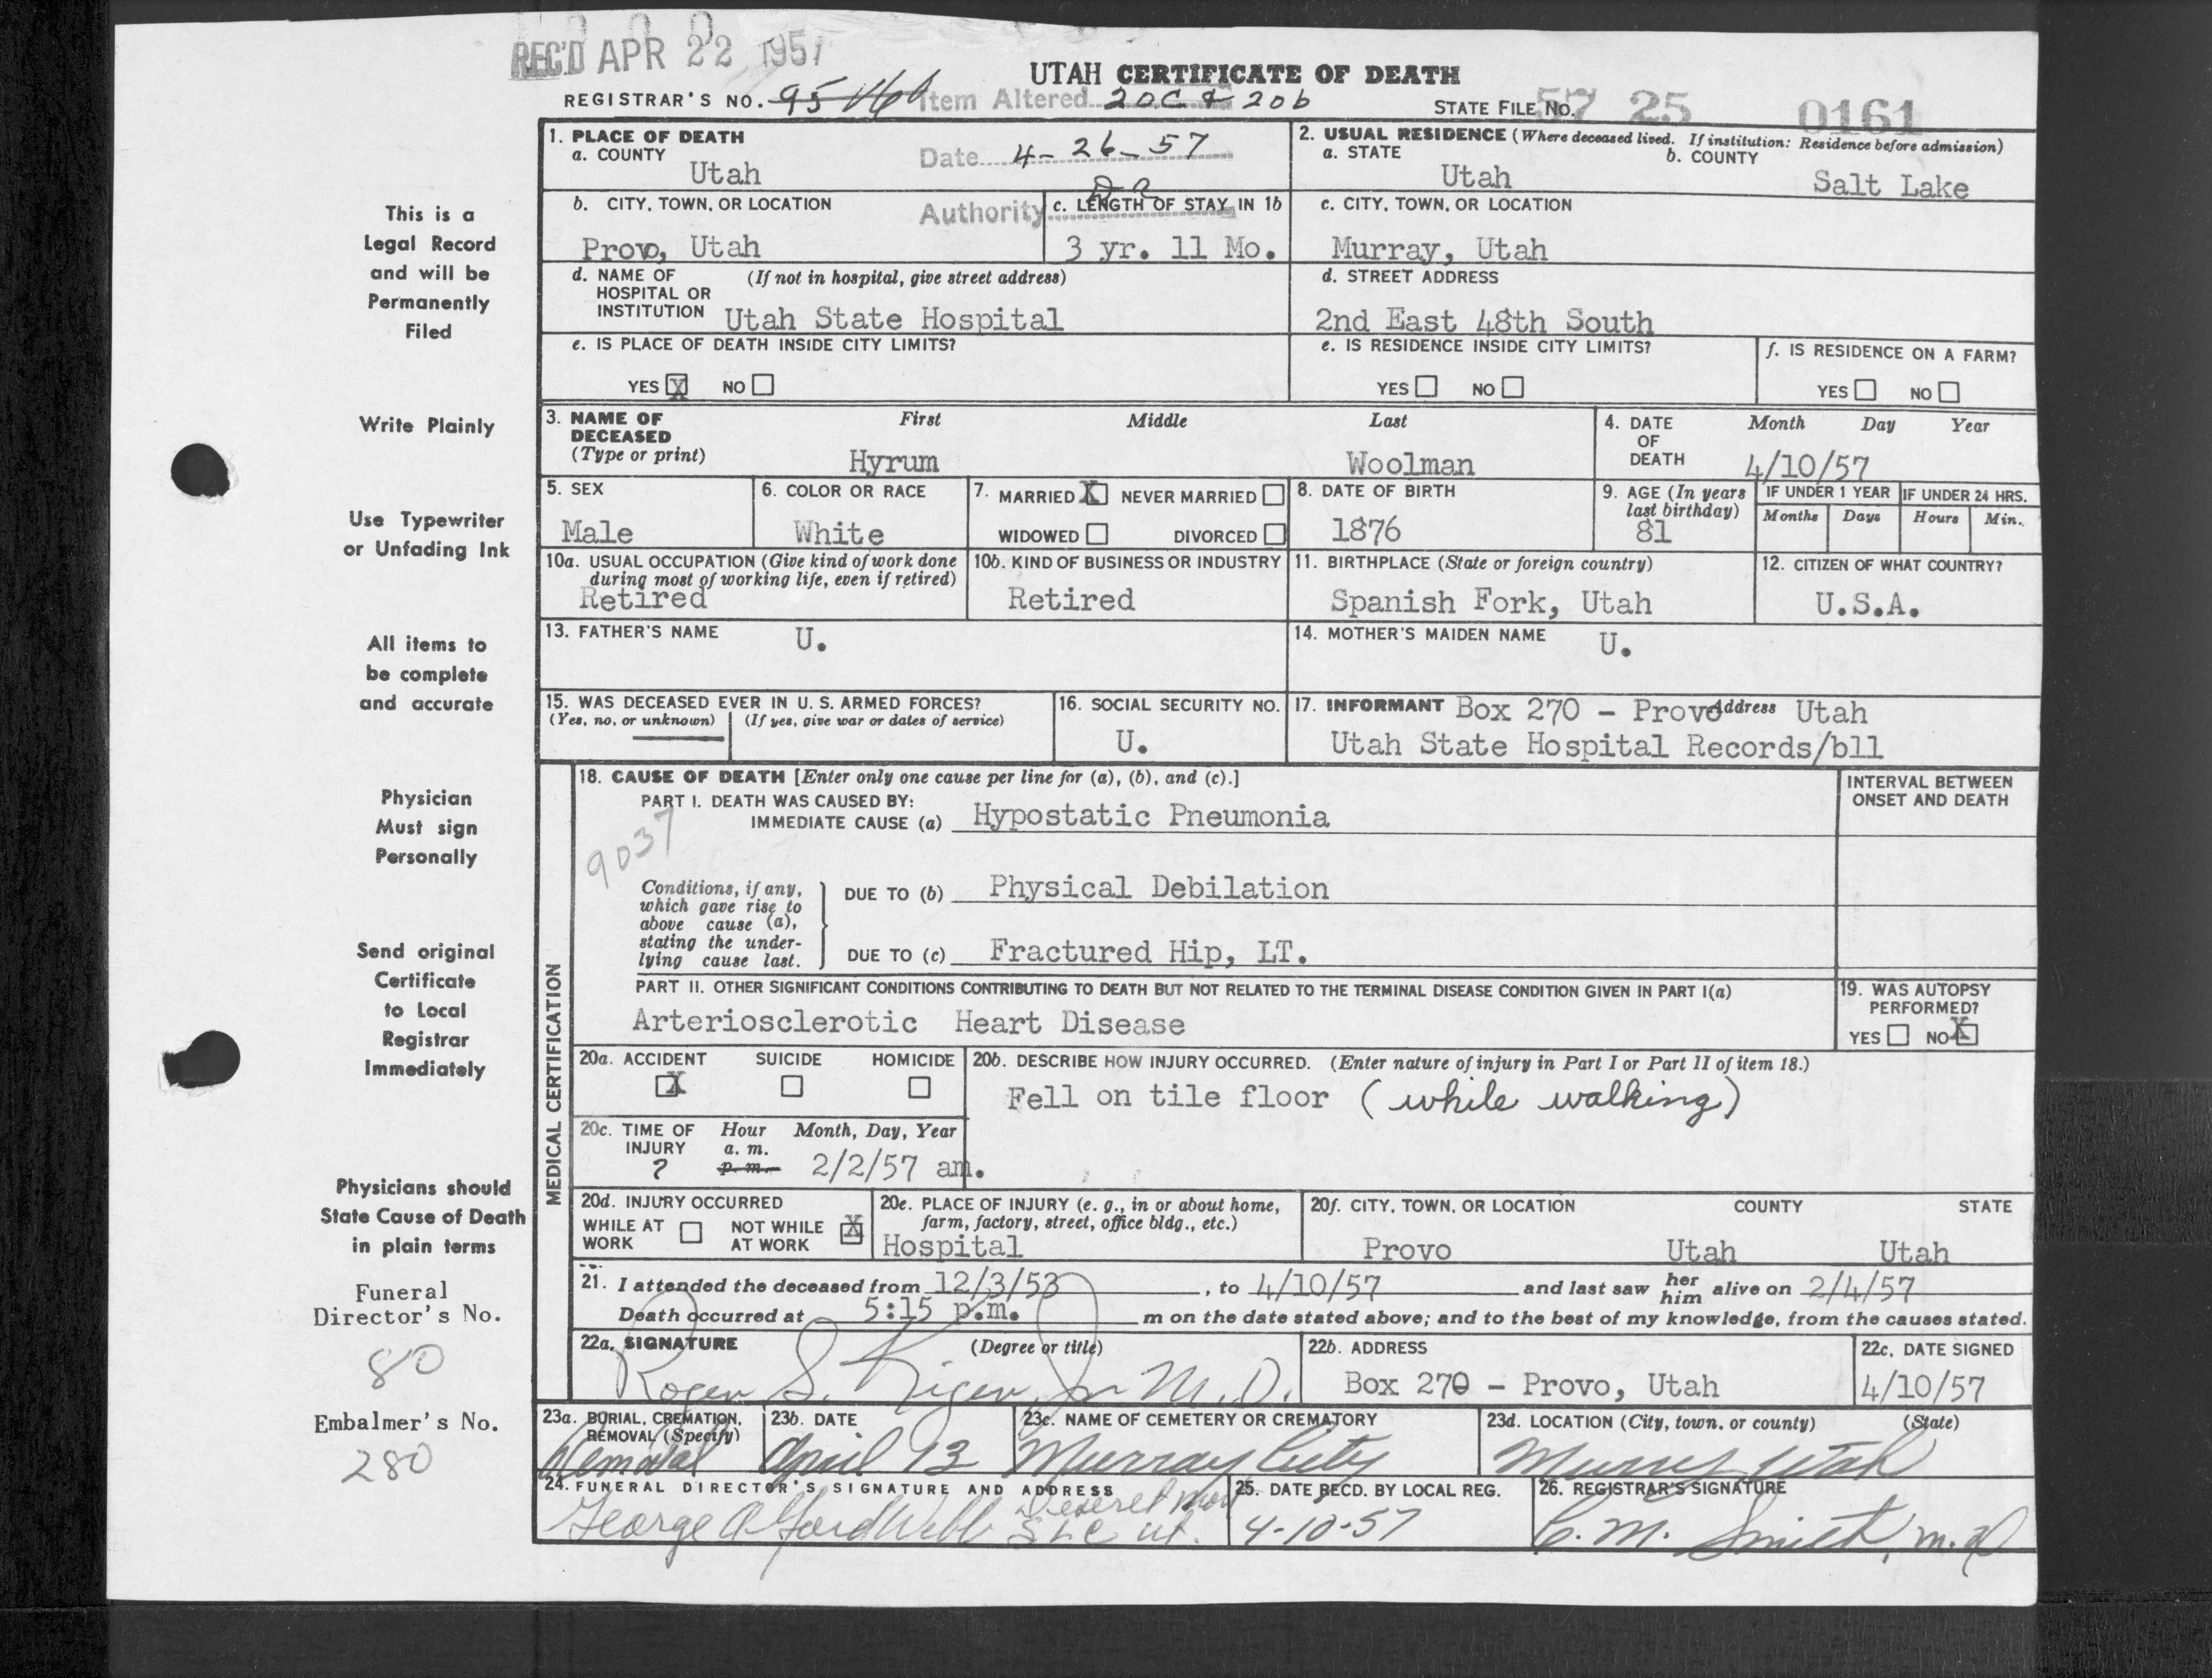 REC'D APR 22 1957
UTAH CERTIFICATE OF DEATH
REGISTRAR'S NO. 95 Item Altered 20C & 20b STATE FILE NO. 57 25 0161
1. PLACE OF DEATH
a. COUNTY
Utah
Date 4-26-57
2. USUAL RESIDENCE (Where deceased lived. If institution: Residence before admission)
a. STATE
Utah
b. COUNTY
Salt Lake
b. CITY, TOWN, OR LOCATION
Provo, Utah
Authority
c. LENGTH OF STAY IN 1b
3 yr. 11 Mo.
c. CITY, TOWN, OR LOCATION
Murray, Utah
d. NAME OF HOSPITAL OR INSTITUTION (If not in hospital, give street address)
Utah State Hospital
d. STREET ADDRESS
2nd East 48th South
e. IS PLACE OF DEATH INSIDE CITY LIMITS?
YES X NO
e. IS RESIDENCE INSIDE CITY LIMITS?
YES NO
f. IS RESIDENCE ON A FARM?
YES NO
3. NAME OF DECEASED (Type or print)
First Middle Last
Hyrum Woolman
4. DATE OF DEATH Month Day Year
4/10/57
5. SEX
Male
6. COLOR OR RACE
White
7. MARRIED X NEVER MARRIED
WIDOWED DIVORCED
8. DATE OF BIRTH
1876
9. AGE (In years last birthday)
81
IF UNDER 1 YEAR
Months Days
IF UNDER 24 HRS.
Hours Min.
10a. USUAL OCCUPATION (Give kind of work done during most of working life, even if retired)
Retired
10b. KIND OF BUSINESS OR INDUSTRY
Retired
11. BIRTHPLACE (State or foreign country)
Spanish Fork, Utah
12. CITIZEN OF WHAT COUNTRY?
U.S.A.
13. FATHER'S NAME
U.
14. MOTHER'S MAIDEN NAME
U.
15. WAS DECEASED EVER IN U. S. ARMED FORCES?
(Yes, no, or unknown) (If yes, give war or dates of service)
16. SOCIAL SECURITY NO.
U.
17. INFORMANT Box 270 - Provo Address Utah
Utah State Hospital Records/bll
MEDICAL CERTIFICATION
18. CAUSE OF DEATH [Enter only one cause per line for (a), (b), and (c).]
INTERVAL BETWEEN ONSET AND DEATH
PART I. DEATH WAS CAUSED BY:
IMMEDIATE CAUSE (a) Hypostatic Pneumonia
9037
Conditions, if any, which gave rise to above cause (a), stating the underlying cause last.
DUE TO (b) Physical Debilation
DUE TO (c) Fractured Hip, LT.
PART II. OTHER SIGNIFICANT CONDITIONS CONTRIBUTING TO DEATH BUT NOT RELATED TO THE TERMINAL DISEASE CONDITION GIVEN IN PART I(a)
Arteriosclerotic Heart Disease
19. WAS AUTOPSY PERFORMED?
YES NO X
20a. ACCIDENT SUICIDE HOMICIDE
X
20b. DESCRIBE HOW INJURY OCCURRED. (Enter nature of injury in Part I or Part II of item 18.)
Fell on tile floor (while walking)
20c. TIME OF INJURY Hour Month, Day, Year
a. m.
p. m.
? 2/2/57 am.
20d. INJURY OCCURRED
WHILE AT WORK NOT WHILE AT WORK X
20e. PLACE OF INJURY (e. g., in or about home, farm, factory, street, office bldg., etc.)
Hospital
20f. CITY, TOWN, OR LOCATION COUNTY STATE
Provo Utah Utah
21. I attended the deceased from 12/3/53, to 4/10/57 and last saw her him alive on 2/4/57
Death occurred at 5:15 p.m. m on the date stated above; and to the best of my knowledge, from the causes stated.
22a. SIGNATURE (Degree or title)
Roger S. Kiger, Jr M.D.
22b. ADDRESS
Box 270 - Provo, Utah
22c. DATE SIGNED
4/10/57
23a. BURIAL, CREMATION, REMOVAL (Specify)
Removal
23b. DATE
April 13
23c. NAME OF CEMETERY OR CREMATORY
Murray City
23d. LOCATION (City, town, or county) (State)
Murray Utah
24. FUNERAL DIRECTOR'S SIGNATURE AND ADDRESS
George Webb Deseret Mort
SLC Ut.
25. DATE RECD. BY LOCAL REG.
4-10-57
26. REGISTRAR'S SIGNATURE
C. M. Smith, m.d
This is a
Legal Record
and will be
Permanently
Filed
Write Plainly
Use Typewriter
or Unfading Ink
All items to
be complete
and accurate
Physician
Must sign
Personally
Send original
Certificate
to Local
Registrar
Immediately
Physicians should
State Cause of Death
in plain terms
Funeral
Director's No.
80
Embalmer's No.
280